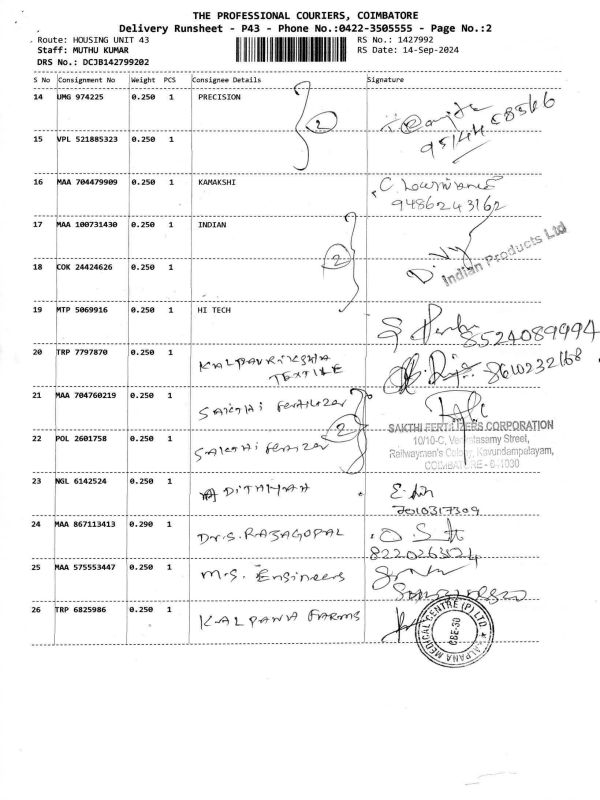 THE PROFESSIONAL COURIERS, COIMBATORE
Delivery Runsheet - P43 - Phone No.:0422-3505555 - Page No.:2
Route: HOUSING UNIT 43 RS No.: 1427992
Staff: MUTHU KUMAR RS Date: 14-Sep-2024
DRS No.: DCJB142799202
S No Consignment No Weight PCS Consignee Details Signature
14 UMG 974225 0.250 1 PRECISION
2
15 VPL 521885323 0.250 1
16 MAA 704479909 0.250 1 KAMAKSHI
9486243162
17 MAA 100731430 0.250 1 INDIAN
Indian Products Ltd
2
18 COK 24424626 0.250 1
19 MTP 5069916 0.250 1 HI TECH
8524089994
20 TRP 7797870 0.250 1 KALPAVRIKSHA
TEXTILE 8610232168
21 MAA 704760219 0.250 1 SAKTHI Fertilizer
2
SAKTHI FERTILIZERS CORPORATION
22 POL 2601758 0.250 1 SAKTHI Ferilizer
10/10-C, Venkatasamy Street,
Railwaymen's Colony, Kavundampalayam,
COIMBATORE - 641030
23 NGL 6142524 0.250 1 ADITHYAA
7010317309
24 MAA 867113413 0.290 1 Dr.S. RAJAGOPAL
8220263124
25 MAA 575553447 0.250 1 M.S. Engineers
26 TRP 6825986 0.250 1 KALPANA FARMS
KALPANA MEDICAL CENTRE (P) LTD
CBE-30